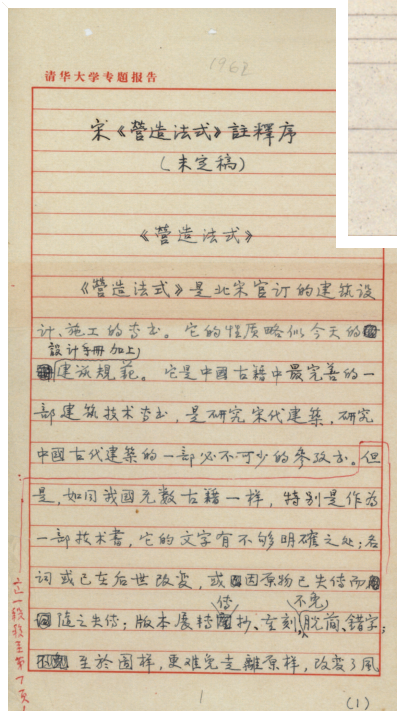 1962
清华大学专题报告
宋《营造法式》註釋序
(未定稿)
《营造法式》
《营造法式》是北宋官订的建筑设
计、施工的专书。它的性质略似今天的
設计手册加上
建筑規范。它是中國古籍中最完善的一
部建筑技术专书,是研究宋代建築,研究
中國古代建築的一部必不可少的参攷书。但
是,如同我國無数古籍一样,特别是作为
一部技术書,它的文字有不够明確之处;名
词或已在后世改变,或因原物已失傳而
傳 不免
随之失傳;版本展转抄、重刻,脱简、錯字;
至於图样,更难免走離原样,改变了風
这一段移至第7頁
1
(1)